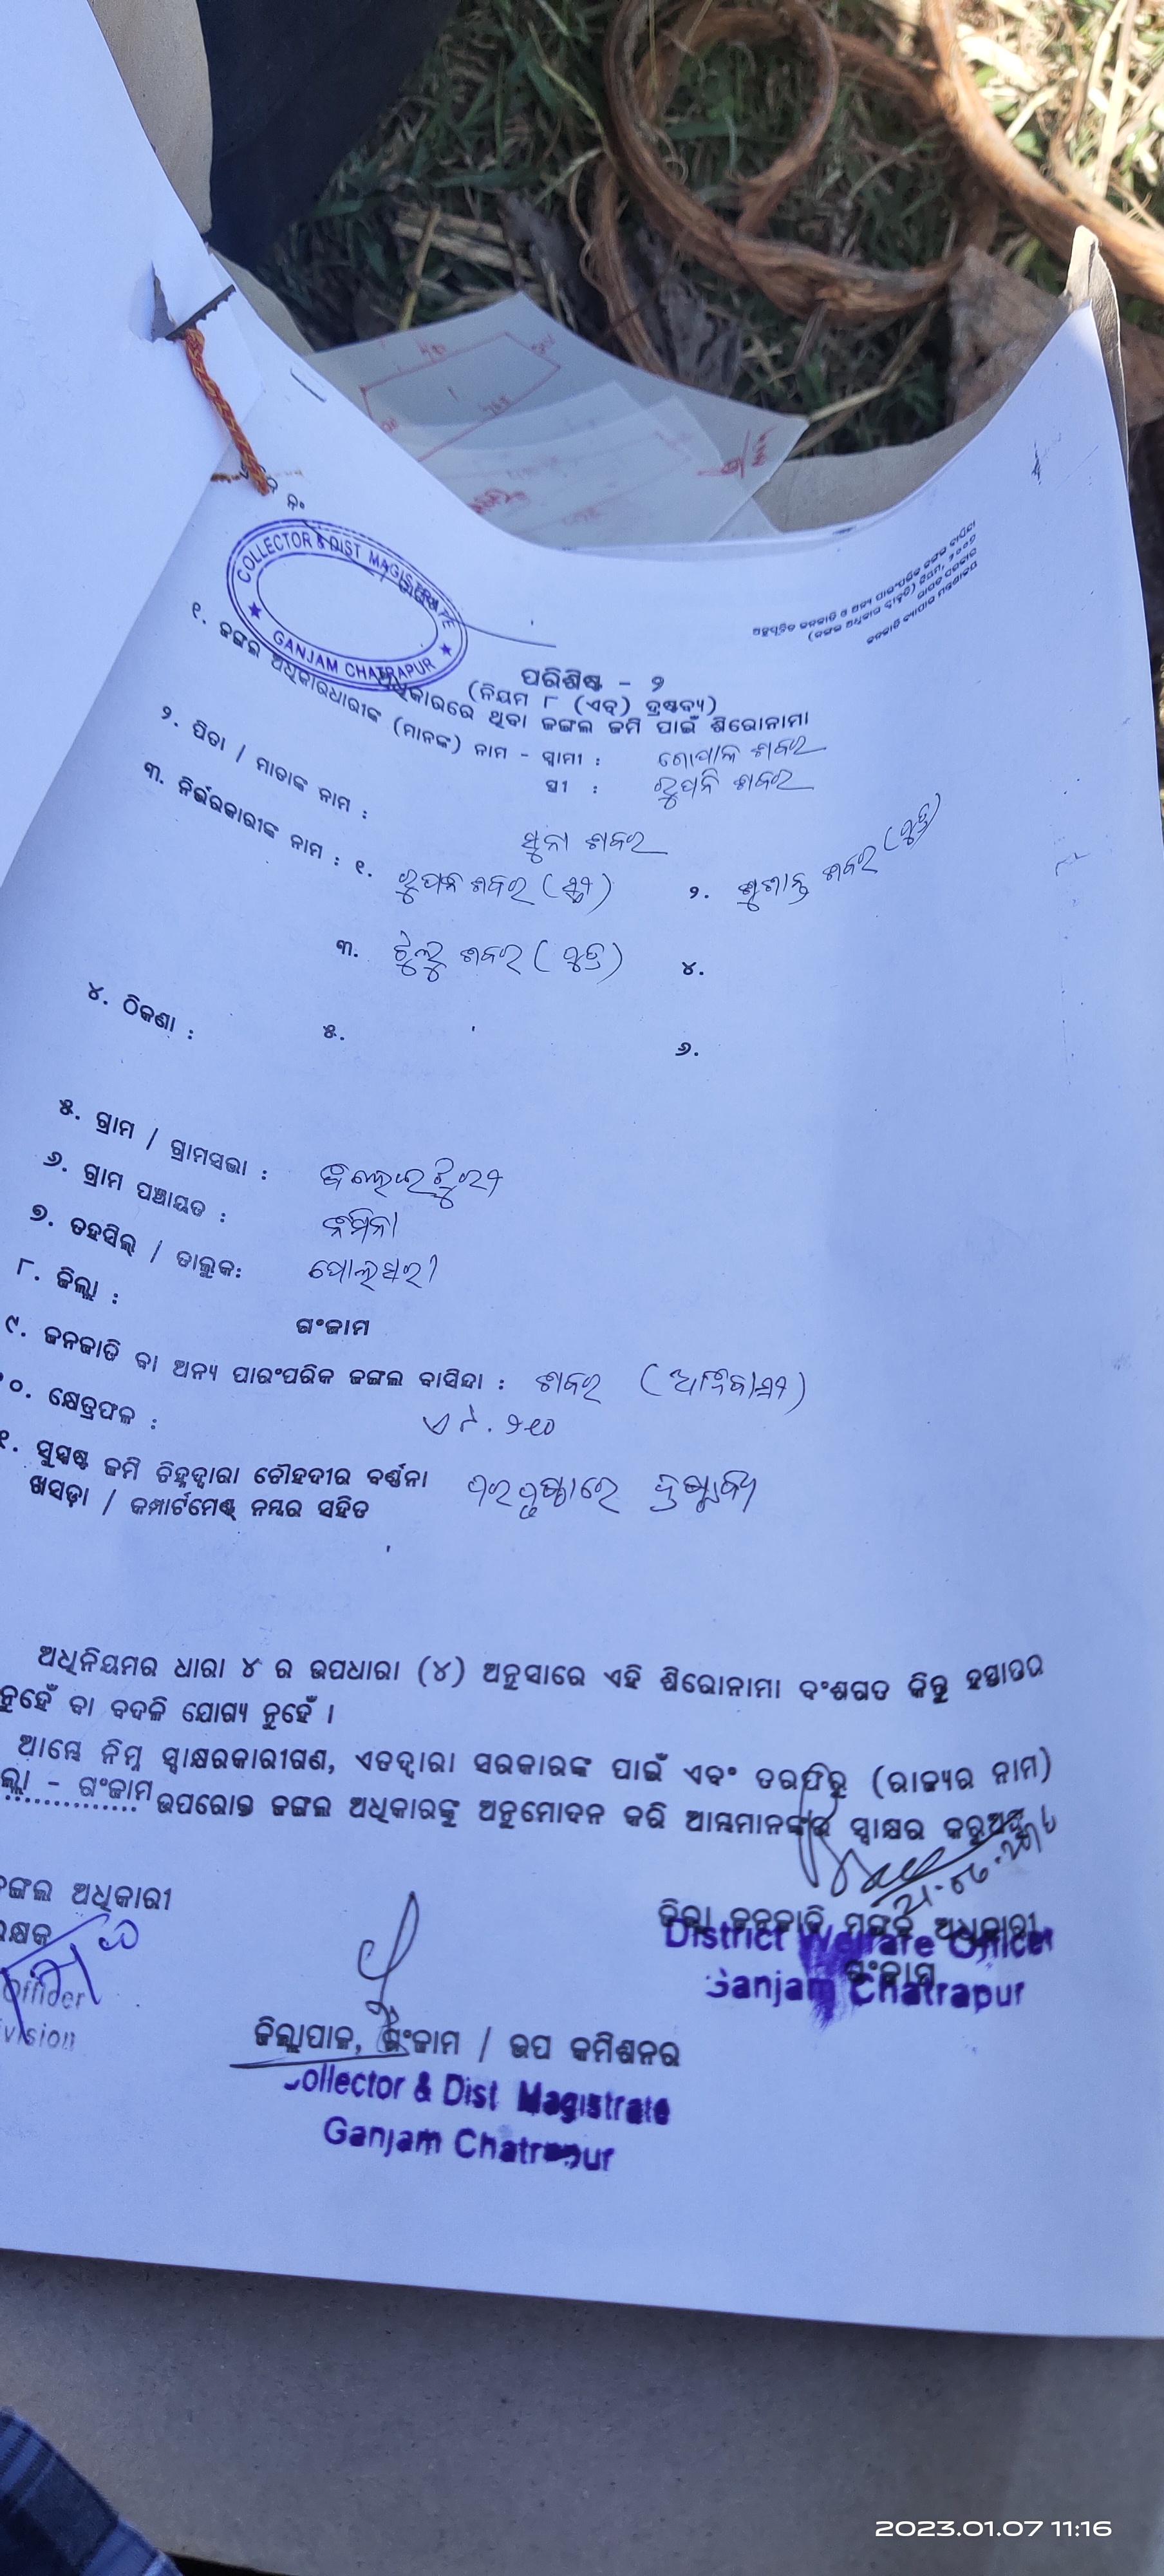 ନ ନଂ
COLLECTOR & DIST MAGISTRATE
GANJAM CHATRAPUR
ଅନୁସୂଚିତ ଜନଜାତି ଓ ଅନ୍ୟ ପାରଂପରିକ ଜଙ୍ଗଲ ବାସିନ୍ଦା
(ଜଙ୍ଗଲ ଅଧିକାର ସ୍ୱୀକୃତି) ନିୟମ, ୨୦୦୭
ଭାରତ ସରକାର
ଜନଜାତି ବ୍ୟାପାର ମନ୍ତ୍ରଣାଳୟ
ପରିଶିଷ୍ଟ - ୨
(ନିୟମ ୮ (ଏଚ୍) ଦ୍ରଷ୍ଟବ୍ୟ)
ଅଧିକାରରେ ଥିବା ଜଙ୍ଗଲ ଜମି ପାଇଁ ଶିରୋନାମା
୧. ଜଙ୍ଗଲ ଅଧିକାରଧାରୀଙ୍କ (ମାନଙ୍କ) ନାମ - ସ୍ୱାମୀ : ଗୋପାଳ ଶବର
ସ୍ତ୍ରୀ : ରୁପନି ଶବର
୨. ପିତା / ମାତାଙ୍କ ନାମ : ସୁନା ଶବର
୩. ନିର୍ଭରକାରୀଙ୍କ ନାମ : ୧. ରୁପନି ଶବର (ସ୍ତ୍ରୀ) ୨. ସୁଶାନ୍ତ ଶବର (ପୁତ୍ର)
୩. ଟୁଲୁ ଶବର (ପୁତ୍ର) ୪.
୫. ୬.
୪. ଠିକଣା :
୫. ଗ୍ରାମ / ଗ୍ରାମସଭା :
୬. ଗ୍ରାମ ପଞ୍ଚାୟତ :
୭. ତହସିଲ୍ / ତାଲୁକ: ପୋଲସରା
୮. ଜିଲ୍ଲା : ଗଂଜାମ
୯. ଜନଜାତି ବା ଅନ୍ୟ ପାରଂପରିକ ଜଙ୍ଗଲ ବାସିନ୍ଦା : ଶବର (ଆଦିବାସୀ)
୧୦. କ୍ଷେତ୍ରଫଳ :
୧. ସୁସ୍ପଷ୍ଟ ଜମି ଚିହ୍ନଦ୍ୱାରା ଚୌହଦୀର ବର୍ଣ୍ଣନା ପରପୃଷ୍ଠାରେ ଦ୍ରଷ୍ଟବ୍ୟ
ଖସଡ଼ା / କମ୍ପାର୍ଟମେଣ୍ଟ ନମ୍ବର ସହିତ
ଅଧିନିୟମର ଧାରା ୪ ର ଉପଧାରା (୪) ଅନୁସାରେ ଏହି ଶିରୋନାମା ବଂଶଗତ କିନ୍ତୁ ହସ୍ତାନ୍ତର
ନୁହେଁ ବା ବଦଳି ଯୋଗ୍ୟ ନୁହେଁ ।
ଆମ୍ଭେ ନିମ୍ନ ସ୍ୱାକ୍ଷରକାରୀଗଣ, ଏତଦ୍ୱାରା ସରକାରଙ୍କ ପାଇଁ ଏବଂ ତରଫରୁ (ରାଜ୍ୟର ନାମ)
ଲ୍ଲା - ଗଂଜାମ ଉପରୋକ୍ତ ଜଙ୍ଗଲ ଅଧିକାରକୁ ଅନୁମୋଦନ କରି ଆମ୍ଭମାନଙ୍କର ସ୍ୱାକ୍ଷର କରୁଅଛୁ
ଜଙ୍ଗଲ ଅଧିକାରୀ
Officer
ivision
ଜିଲ୍ଲା ଜନଜାତି ମଙ୍ଗଳ ଅଧିକାରୀ
ଗଂଜାମ
District Welfare Officer
Ganjam Chatrapur
ଜିଲ୍ଲାପାଳ, ଗଂଜାମ / ଉପ କମିଶନର
Collector & Dist Magistrate
Ganjam Chatrapur
2023.01.07 11:16